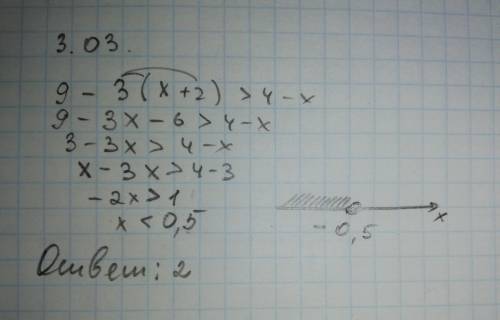 3.03.
9 - 3(x+2) > 4 - x
9 - 3x - 6 > 4 - x
3 - 3x > 4 - x
x - 3x > 4 - 3
- 2x > 1
x < 0,5
x
- 0,5
Ответ: 2